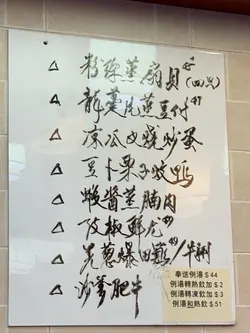 粉絲蒸扇貝(四只)
龍蔓片蒸豆付
涼瓜叉燒炒蛋
豆卜栗子炆鴨
蝦醬蒸腩肉
豉椒鮮尤
羌葱爆田雞/牛脷
沙爹肥牛
奉送例湯$44
例湯轉熱飲加$2
例湯轉凍飲加$3
例湯和熱飲$51